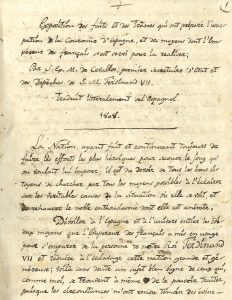 Exposition des faits et des trames qui ont préparé l'usur
pation de la Couronne d'Espagne, et des moyens dont l'Em
pereur des français s'est servi pour la realiser;
Par S. Exc. M. de Cevallos, premier secrétaire d'Etat et
des Dépêches de S. M. Ferdinand VII.
Traduit littéralement de l'Espagnol
1808.
La Nation, ayant fait et continuant toujours de
faire les efforts les plus héroiques pour secouer le joug qu'
on voulait lui imposer, il est du devoir de tous les bons ci
toyens de chercher par tous les moyens possibles à l'éclairer
sur les véritables causes de la situation où elle se voit, et
d'entretenir le noble enthousiasme dont elle est animée.
Dévoiler à l'Espagne et à l'univers entier les
moyens que l'Empereur des français a mis en usage
pour s'emparer de la personne de notre Roi Ferdinand
VII et réduire à l'esclavage cette nation grande et gé
néreuse; voilà sans doute un sujet bien digne de ceux qui,
comme moi, se trouvent à même de le pouvoir traiter,
puisque les circonstances m'ont